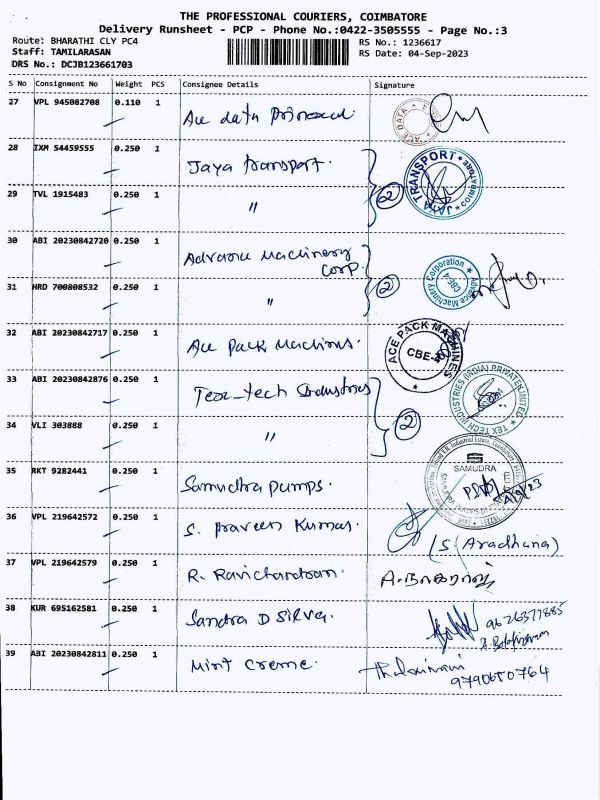 THE PROFESSIONAL COURIERS, COIMBATORE
Delivery Runsheet - PCP - Phone No.:0422-3505555 - Page No.:3
Route: BHARATHI CLY PC4 RS No.: 1236617
Staff: TAMILARASAN RS Date: 04-Sep-2023
DRS No.: DCJB123661703
S No Consignment No Weight PCS Consignee Details Signature
27 VPL 945082708 0.110 1 Ace data ACE DATA
28 IXM 54459555 0.250 1 Jaya transport. JAYA TRANSPORT COIMBATORE
29 TVL 1915483 0.250 1 " 2
30 ABI 20230842720 0.250 1 Advance Machinery Corp. Advance Machinery Corporation CBE-4
31 HRD 700808532 0.250 1 " 2
32 ABI 20230842717 0.250 1 Ace Pack Machines. ACE PACK MACHINES CBE-4
33 ABI 20230842876 0.250 1 Tex-tech Industries TEX TECH INDUSTRIES (INDIA) PRIVATE LIMITED
34 VLI 303888 0.250 1 " 2
35 RKT 9282441 0.250 1 Samudra Pumps. SAMUDRA 4/9/23
36 VPL 219642572 0.250 1 S. Praveen Kumar. (S. Aradhana)
37 VPL 219642579 0.250 1 R. Ravichandran. A. நாகராஜ்
38 KUR 695162581 0.250 1 Sandra D Silva. 9626377885
39 ABI 20230842811 0.250 1 Mint Creme. Thulasimani
9790650764